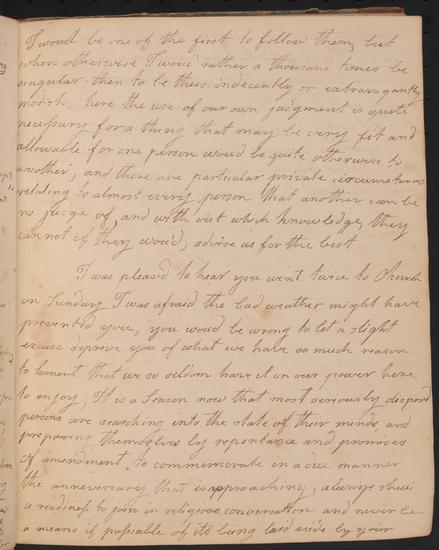 I woud be one of the first to follow them, but
when otherwise I woud rather a thousand times be
singular then to be thus indecently or extravagantly
modish, here the use of our own judgment is quite
necessary for a thing that may be very fit and
allowable for one person woud be quite otherwise to
another; and there are particular private circumstances
relating to almost every person that another can be
no judge of, and with out which knowledge, they
cannot if they wou'd, advise us for the best
I was pleas'd to hear you went twice to Church
on Sunday I was afraid the bad weather might have
prevented you, you woud be wrong to let a slight
excuse deprive you of what we have so much reason
to lament that we so seldom have it in our power here
to enjoy, It is a Season now that most seriously disposd
persons are searching into the state of their minds, and
preparing themselves by repentance and promises
of amendment, to commemorate in a due manner
the anneversary that is approaching, always shew
a readiness to join in religious conversation and never be
a means if possiable of its being laid aside by your